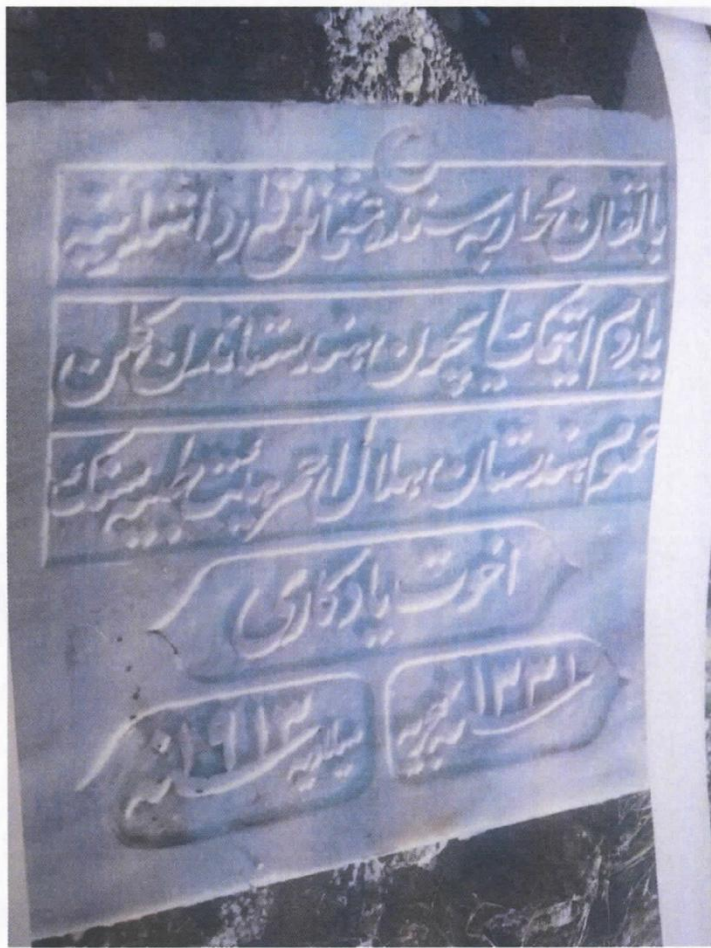 بالقان محاربه سنده عثمانلی قارداشلرینه
یاردم ایتمك ایچون هندستاندن كلن
عموم هندستان هلال احمر هیئت طبیه سنك
اخوت یادكاری
سنه ۱۳۳۱ هجریه
سنه ۱۹۱۳ میلادیه